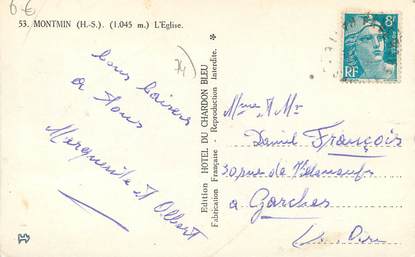 6 €
53. MONTMIN (H.-S.). (1.045 m.) L'Eglise.
74
bons baisers
a tous
Marguerite et Albert
Edition HOTEL DU CHARDON BLEU
Fabrication Française - Reproduction Interdite.
8F
RF
Mme & Mr
Daniel François
30 rue de Villeneuve
a Garches